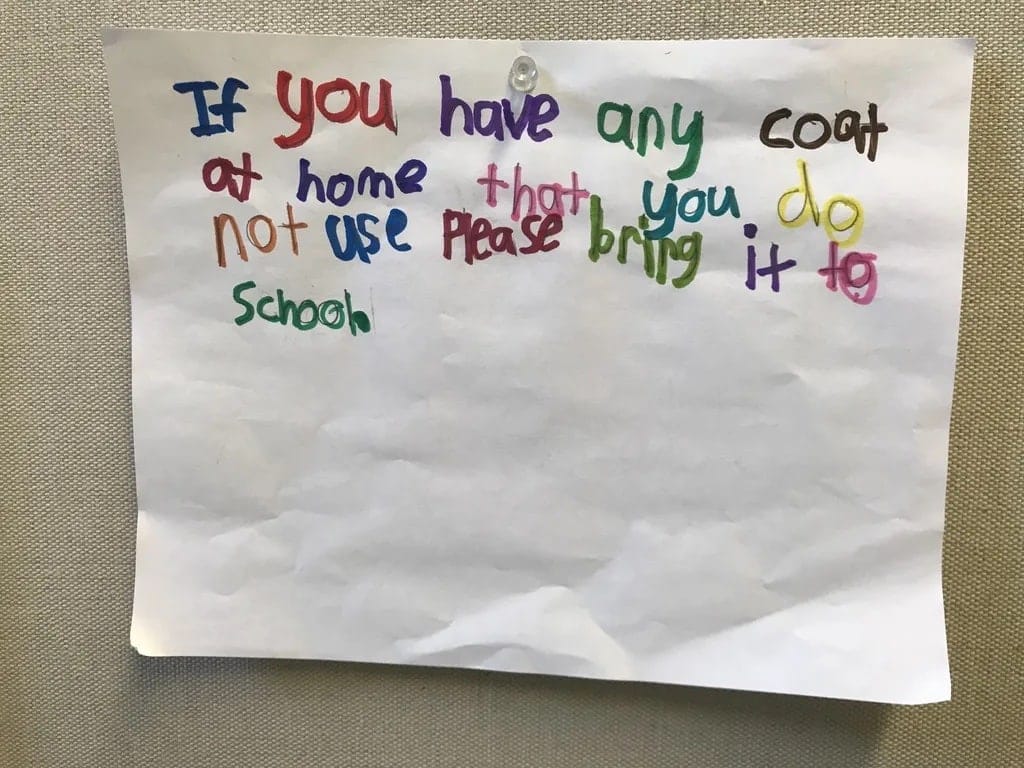 If you have any coat
at home that you do
not use Please bring it to
School